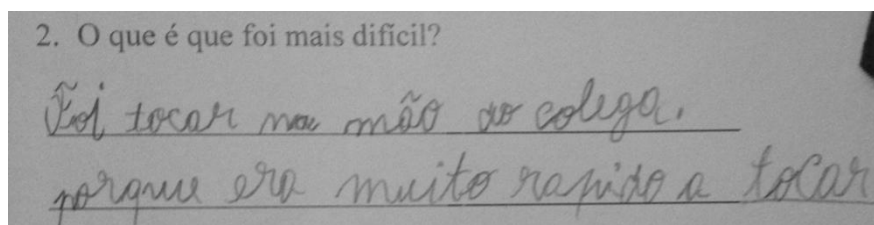 2. O que é que foi mais difícil?
Foi tocar na mão do colega.
porque era muito rapido a tocar